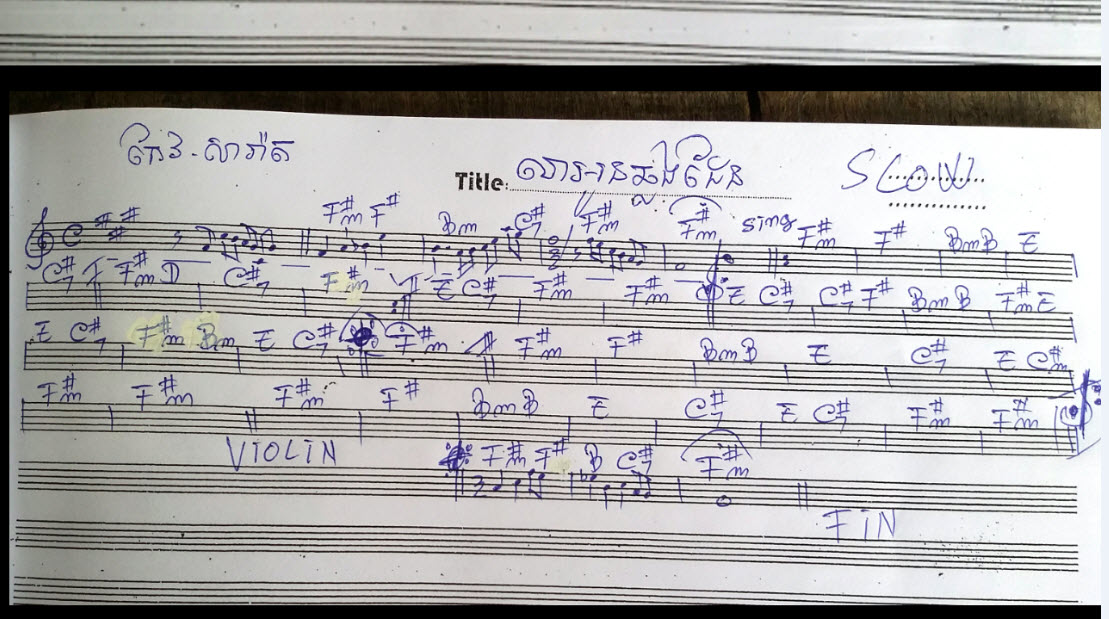 កែវ-សារ៉ាត
Title: ហោរ-រនឆ្លងដែន SLOW
F#m F# Bm C#7 F#m F#m sing F#m F# Bm B E
C#7 F#m D C#7 F#m E C#7 F#m F#m E C#7 C#7 F# Bm B F#m E
E C#7 F#m Bm E C#7 F#m F#m F# Bm B E C#7 E C#m
F#m F#m F#m F# Bm B E C#7 E C#7 F#m F#m
VIOLIN
F#m F# B C#7 F#m
FIN